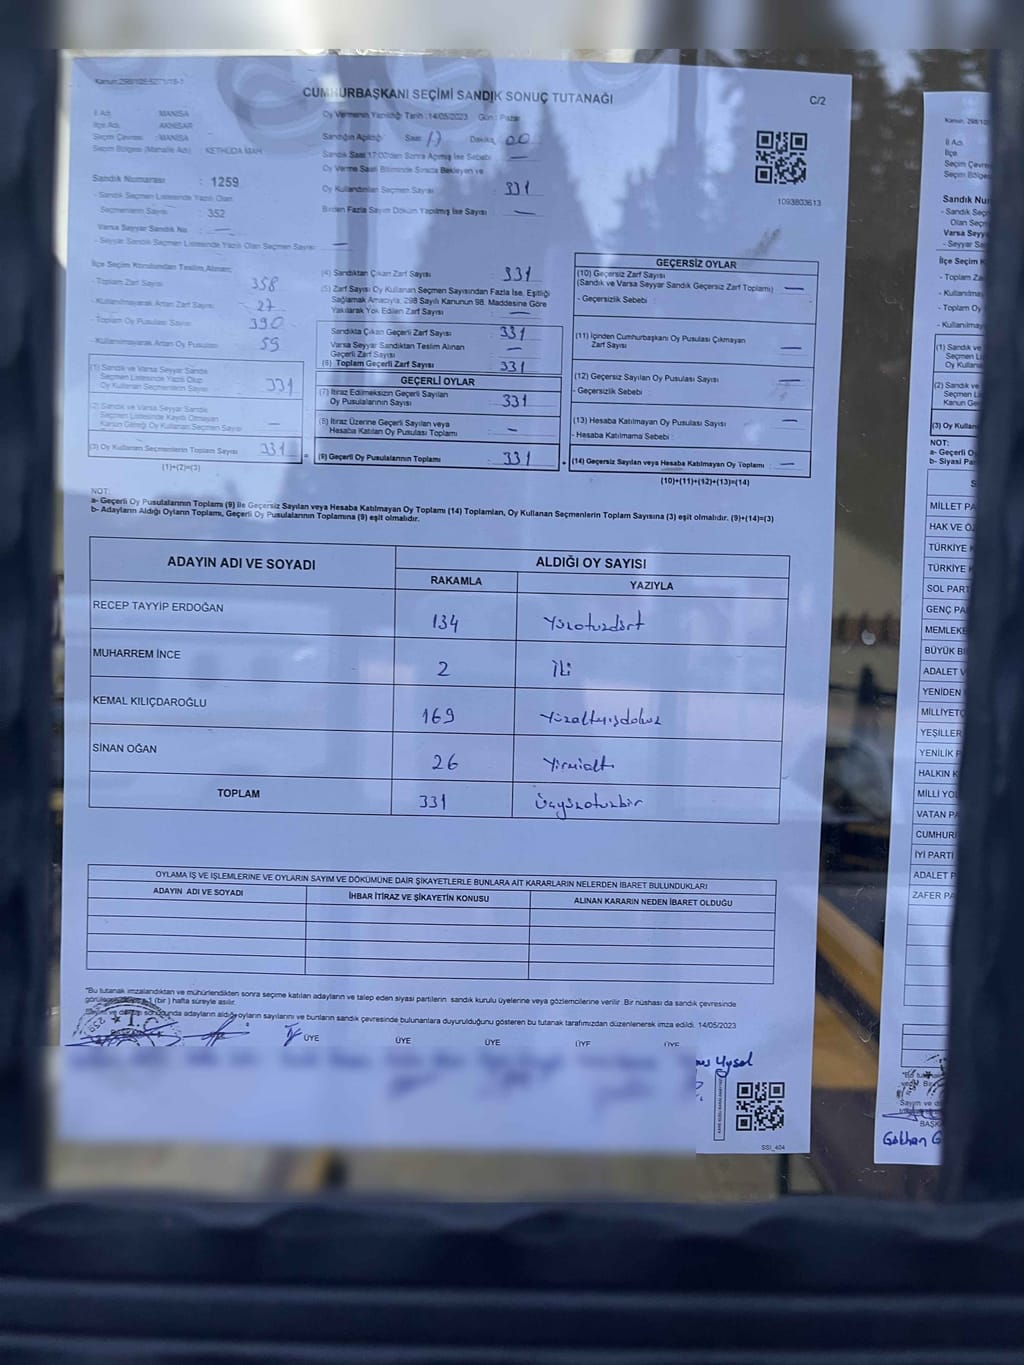 Kanun: 298/105:5271/18-1
CUMHURBAŞKANI SEÇİMİ SANDIK SONUÇ TUTANAĞI
C/2
İl Adı : MANİSA
İlçe Adı : AKHİSAR
Seçim Çevresi : MANİSA
Seçim Bölgesi (Mahalle Adı) : KETHÜDA MAH.
Sandık Numarası : 1259
- Sandık Seçmen Listesinde Yazılı Olan
Seçmenlerin Sayısı : 352
Varsa Seyyar Sandık No : —
- Seyyar Sandık Seçmen Listesinde Yazılı Olan Seçmen Sayısı : —
Oy Vermenin Yapıldığı Tarih :14/05/2023 Gün : Pazar
Sandığın Açıldığı Saat 17 Dakika 00
Sandık Saat 17:00'den Sonra Açılmış İse Sebebi —
Oy Verme Saati Bitiminde Sırada Bekleyen ve
Oy Kullandırılan Seçmen Sayısı 331
Birden Fazla Sayım Döküm Yapılmış İse Sayısı —
1093803613
İlçe Seçim Kurulundan Teslim Alınan:
- Toplam Zarf Sayısı 358
- Kullanılmayarak Artan Zarf Sayısı 27
- Toplam Oy Pusulası Sayısı 390
- Kullanılmayarak Artan Oy Pusulası 59
(1) Sandık ve Varsa Seyyar Sandık
Seçmen Listesinde Yazılı Olup
Oy Kullanan Seçmenlerin Sayısı 331
(2) Sandık ve Varsa Seyyar Sandık
Seçmen Listesinde Kaydı Olmayan
Kanun Gereği Oy Kullanan Seçmen Sayısı —
(3) Oy Kullanan Seçmenlerin Toplam Sayısı 331
(1)+(2)=(3)
(4) Sandıktan Çıkan Zarf Sayısı : 331
(5) Zarf Sayısı Oy Kullanan Seçmen Sayısından Fazla İse, Eşitliği
Sağlamak Amacıyla, 298 Sayılı Kanunun 98. Maddesine Göre
Yakılarak Yok Edilen Zarf Sayısı : —
Sandıkta Çıkan Geçerli Zarf Sayısı : 331
Varsa Seyyar Sandıktan Teslim Alınan
Geçerli Zarf Sayısı : —
(6) Toplam Geçerli Zarf Sayısı : 331
GEÇERLİ OYLAR
(7) İtiraz Edilmeksizin Geçerli Sayılan
Oy Pusulalarının Sayısı : 331
(8) İtiraz Üzerine Geçerli Sayılan veya
Hesaba Katılan Oy Pusulası Toplamı : —
(9) Geçerli Oy Pusulalarının Toplamı : 331
GEÇERSİZ OYLAR
(10) Geçersiz Zarf Sayısı
(Sandık ve Varsa Seyyar Sandık Geçersiz Zarf Toplamı) : —
- Geçersizlik Sebebi :
(11) İçinden Cumhurbaşkanı Oy Pusulası Çıkmayan
Zarf Sayısı : —
(12) Geçersiz Sayılan Oy Pusulası Sayısı : —
- Geçersizlik Sebebi :
(13) Hesaba Katılmayan Oy Pusulası Sayısı : —
- Hesaba Katılmama Sebebi :
(14) Geçersiz Sayılan veya Hesaba Katılmayan Oy Toplamı : —
(10)+(11)+(12)+(13)=(14)
NOT:
a- Geçerli Oy Pusulalarının Toplamı (9) ile Geçersiz Sayılan veya Hesaba Katılmayan Oy Toplamı (14) Toplamları, Oy Kullanan Seçmenlerin Toplam Sayısına (3) eşit olmalıdır. (9)+(14)=(3)
b- Adayların Aldığı Oyların Toplamı, Geçerli Oy Pusulalarının Toplamına (9) eşit olmalıdır.
ADAYIN ADI VE SOYADI
ALDIĞI OY SAYISI
RAKAMLA YAZIYLA
RECEP TAYYİP ERDOĞAN 134 Yüzotuzdört
MUHARREM İNCE 2 İki
KEMAL KILIÇDAROĞLU 169 Yüzaltmışdokuz
SİNAN OĞAN 26 Yirmialtı
TOPLAM 331 Üçyüzotuzbir
OYLAMA İŞ VE İŞLEMLERİNE VE OYLARIN SAYIM VE DÖKÜMÜNE DAİR ŞİKAYETLERLE BUNLARA AİT KARARLARIN NELERDEN İBARET BULUNDUKLARI
ADAYIN ADI VE SOYADI İHBAR İTİRAZ VE ŞİKAYETİN KONUSU ALINAN KARARIN NEDEN İBARET OLDUĞU
*Bu tutanak imzalandıktan ve mühürlendikten sonra seçime katılan adayların ve talep eden siyasi partilerin sandık kurulu üyelerine veya gözlemcilerine verilir. Bir nüshası da sandık çevresinde
1 (bir) hafta süreyle asılır.
Sayım ve döküm sonucunda adayların aldığı oyların sayılarını ve bunların sandık çevresinde bulunanlara duyurulduğunu gösteren bu tutanak tarafımızdan düzenlenerek imza edildi. 14/05/2023
T.C.
ÜYE ÜYE ÜYE ÜYE ÜYE
Uysal
SSİ_404
Kanun: 298/10
İl Adı
İlçe
Seçim Çevre
Seçim Bölge
Sandık Nu
- Sandık Seç
Olan Seçm
Varsa Seyy
- Seyyar Sa
İlçe Seçim K
- Toplam Za
- Kullanılma
- Toplam O
- Kullanılmay
(1) Sandık ve
Seçmen Li
Oy Kullana
(2) Sandık ve
Seçmen L
Kanun Ger
(3) Oy Kullan
NOT:
a- Geçerli O
b- Siyasi Par
S
MİLLET PA
HAK VE Ö
TÜRKİYE
TÜRKİYE
SOL PART
GENÇ PA
MEMLEKE
BÜYÜK Bİ
ADALET V
YENİDEN
MİLLİYETÇ
YEŞİLLER
YENİLİK P
HALKIN K
MİLLİ YO
VATAN PA
CUMHURİ
İYİ PARTİ
ADALET P
ZAFER PA
*Bu tuta
Sayım ve d
BAŞK
Gökhan G